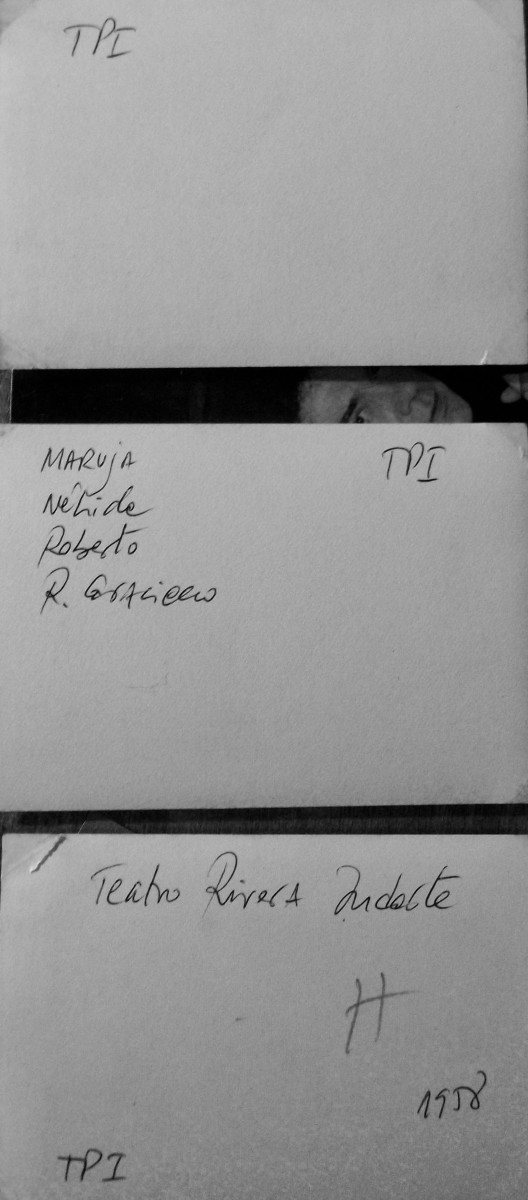 TPI
MARUJA
TPI
Nélida
Roberto
R.
Teatro RiverA Indarte
H
1958
TPI